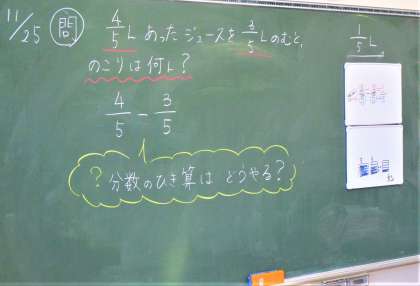 11/25 問 4/5L あったジュースを 3/5Lのむと、
のこりは何L?
4/5 - 3/5
? 分数のひき算は どうやる?
1/5 L